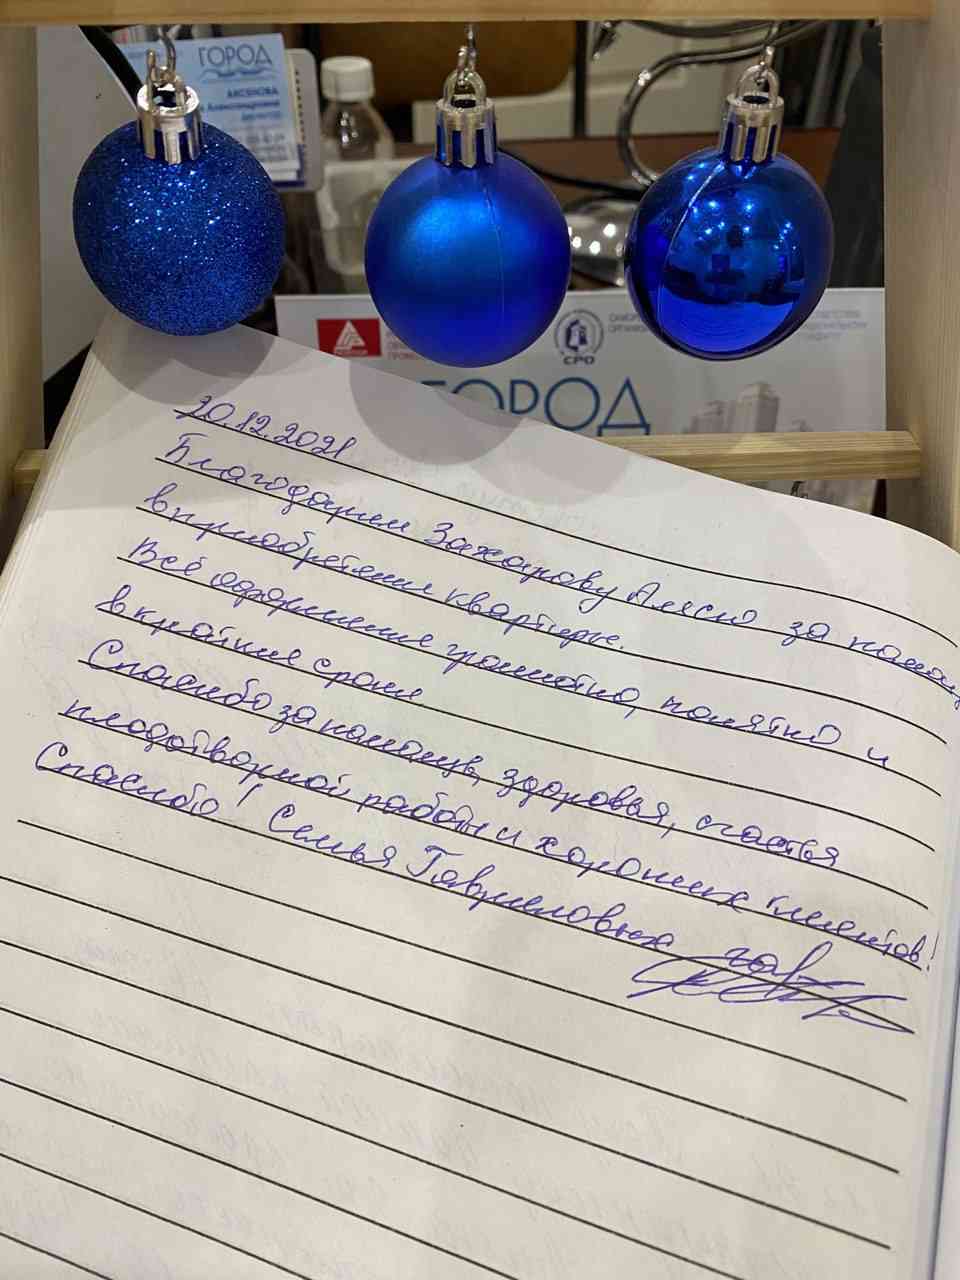 ГОРОД
АКСЕНОВА
Александровна
СРО
ГОРОД
20.12.2021
Благодарим Захарову Алесю за помощь
в приобретении квартиры.
Всё оформление грамотно, понятно и
в крайние сроки
Спасибо за помощь, здоровья, счастья
плодотворной работы и хороших клиентов!
Спасибо! Семья Гавриловых